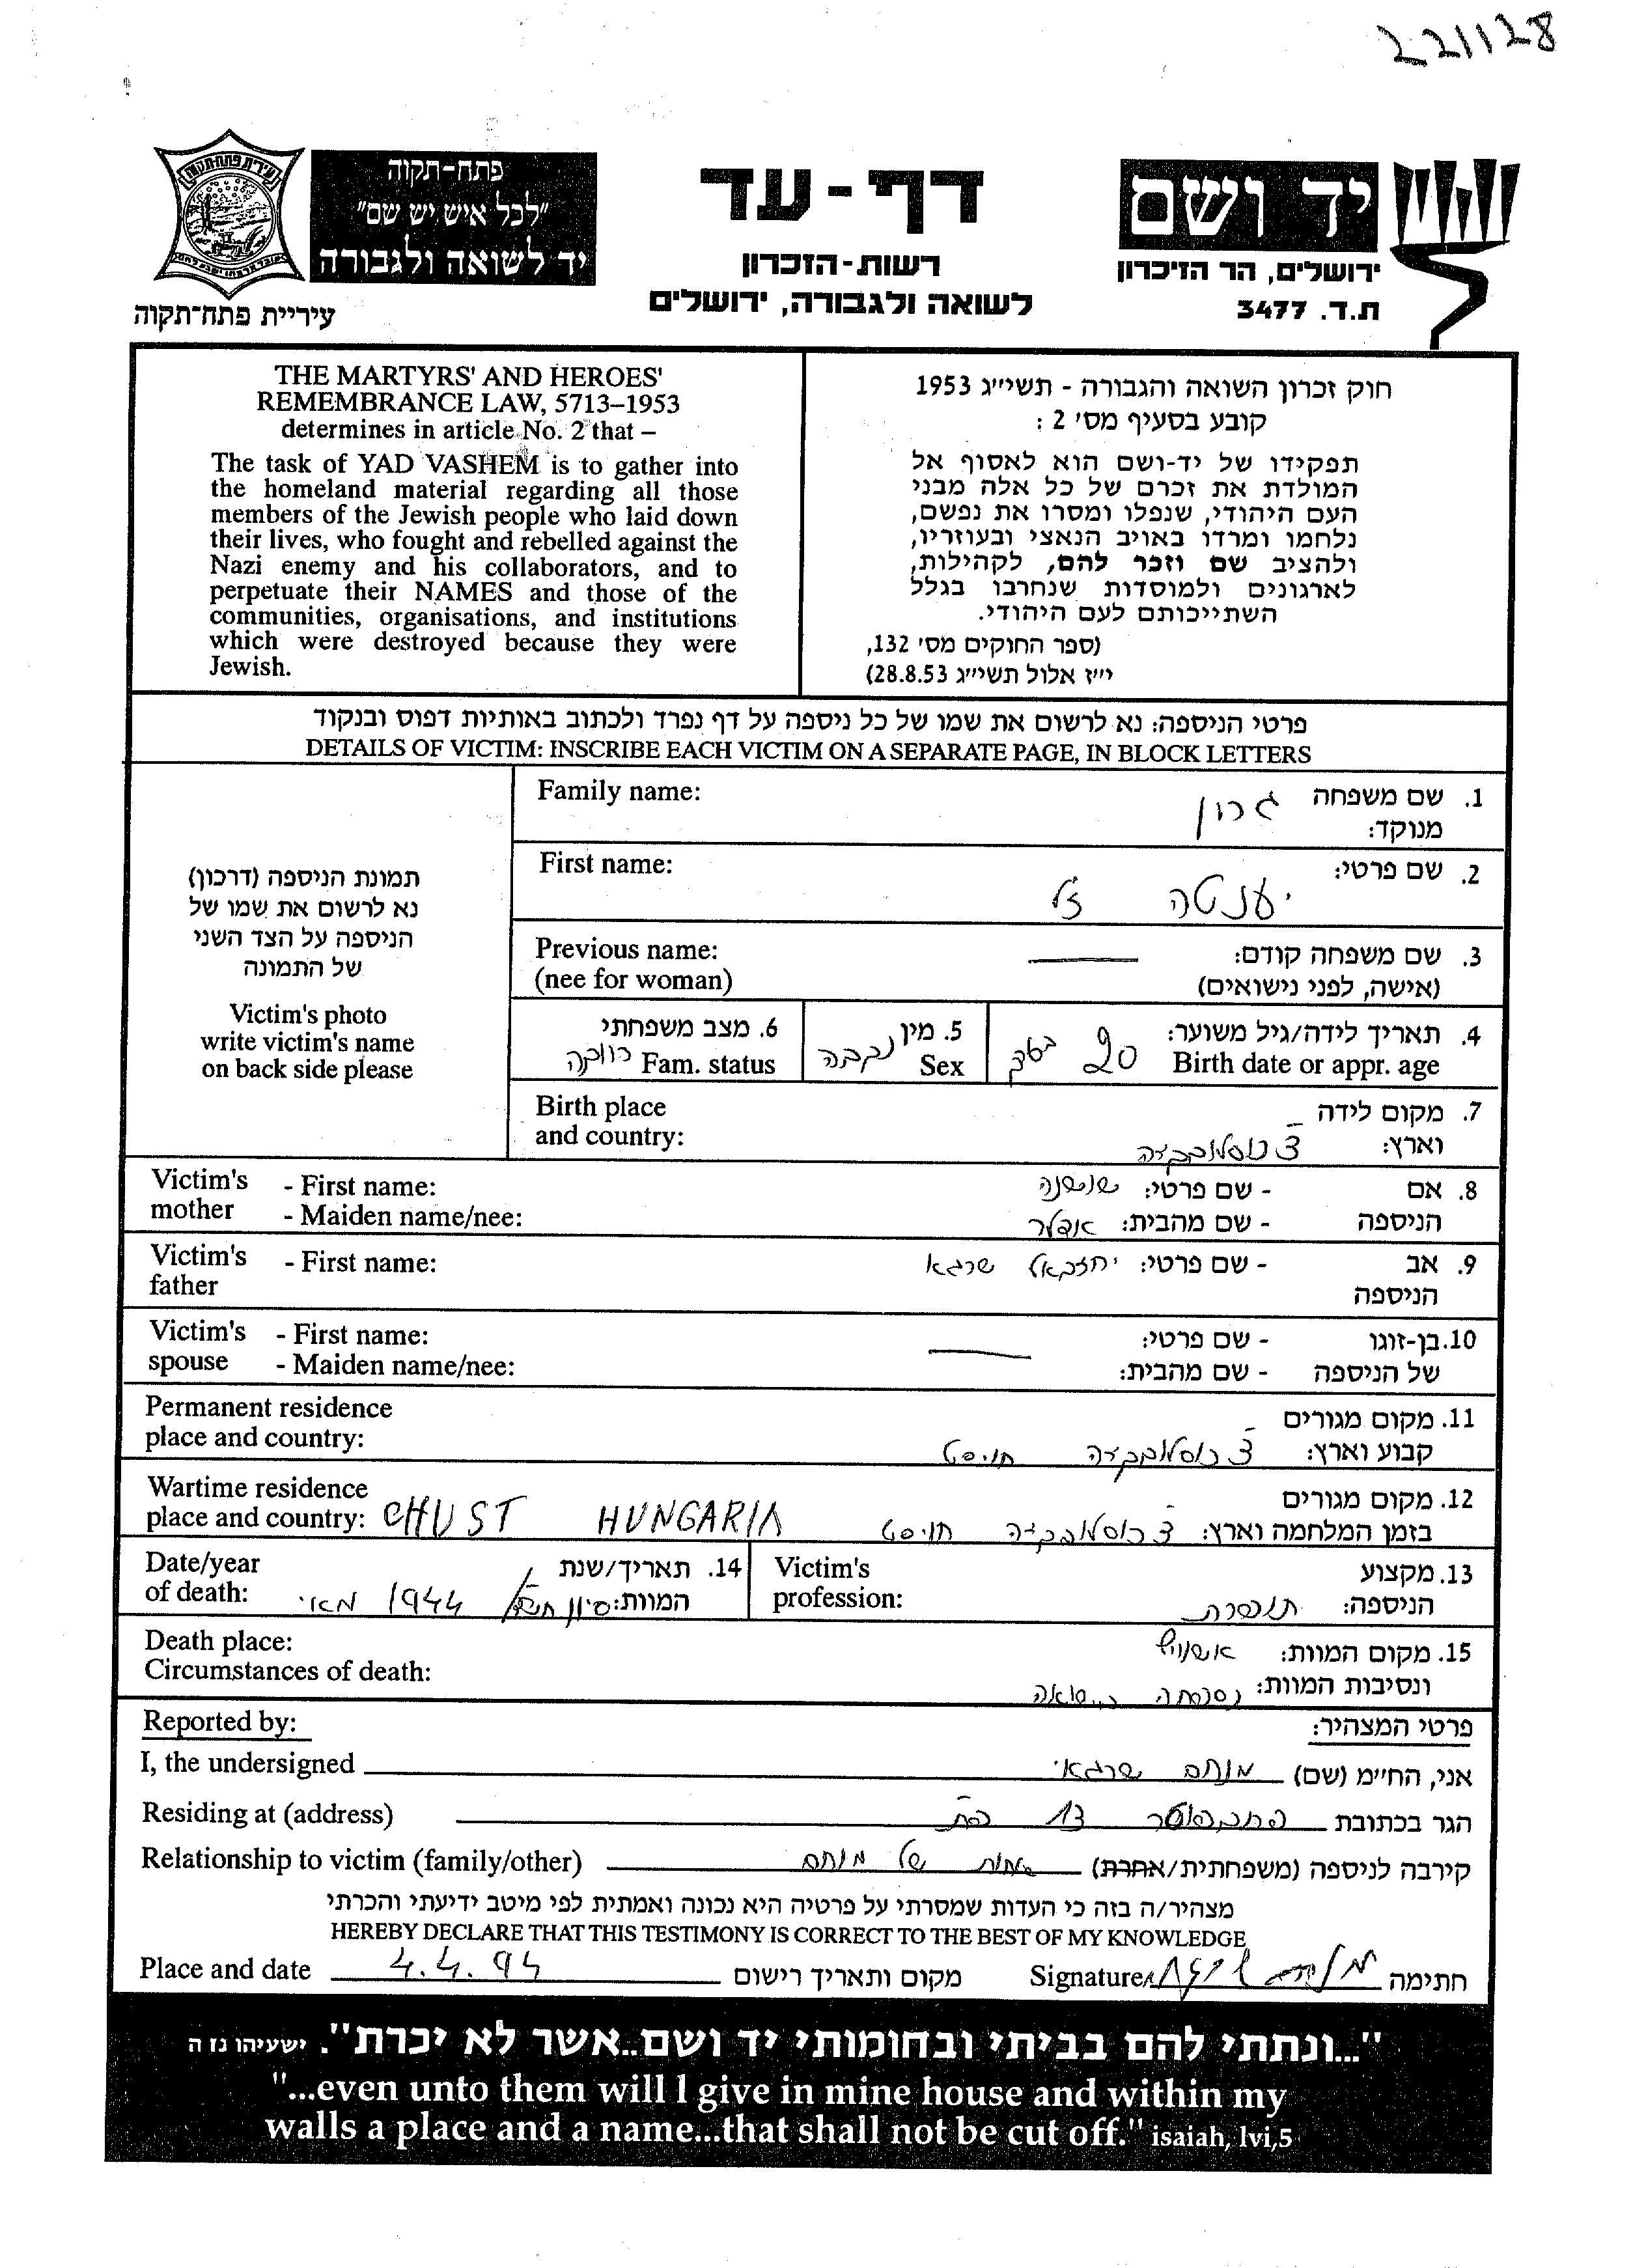 221128
עיריית פתח-תקוה
פתח-תקוה
"לכל איש יש שם"
יד לשואה ולגבורה
עיריית פתח-תקוה
דף-עד
רשות-הזכרון
לשואה ולגבורה, ירושלים
יד ושם
ירושלים, הר הזיכרון
ת.ד. 3477
THE MARTYRS' AND HEROES'
REMEMBRANCE LAW, 5713–1953
determines in article No. 2 that –
The task of YAD VASHEM is to gather into
the homeland material regarding all those
members of the Jewish people who laid down
their lives, who fought and rebelled against the
Nazi enemy and his collaborators, and to
perpetuate their NAMES and those of the
communities, organisations, and institutions
which were destroyed because they were
Jewish.
חוק זכרון השואה והגבורה - תשי"ג 1953
קובע בסעיף מס' 2 :
תפקידו של יד-ושם הוא לאסוף אל
המולדת את זכרם של כל אלה מבני
העם היהודי, שנפלו ומסרו את נפשם,
נלחמו ומרדו באויב הנאצי ובעוזריו,
ולהציב שם וזכר להם, לקהילות,
לארגונים ולמוסדות שנחרבו בגלל
השתייכותם לעם היהודי.
(ספר החוקים מס' 132,
י"ז אלול תשי"ג 28.8.53)
פרטי הניספה: נא לרשום את שמו של כל ניספה על דף נפרד ולכתוב באותיות דפוס ובנקוד
DETAILS OF VICTIM: INSCRIBE EACH VICTIM ON A SEPARATE PAGE, IN BLOCK LETTERS
תמונת הניספה (דרכון)
נא לרשום את שמו של
הניספה על הצד השני
של התמונה
Victim's photo
write victim's name
on back side please
1. שם משפחה גרון Family name:
מנוקד:
2. שם פרטי: יענטה ז"ל First name:
3. שם משפחה קודם: Previous name:
(אישה, לפני נישואים) (nee for woman)
4. תאריך לידה/גיל משוער:
Birth date or appr. age 20
5. מין
Sex נקבה
6. מצב משפחתי
Fam. status רווקה
7. מקום לידה Birth place
וארץ: צ'כוסלובקיה and country:
8. אם - שם פרטי: שושנה Victim's - First name:
הניספה - שם מהבית: אפלר mother - Maiden name/nee:
9. אב - שם פרטי: יחזקאל שרגא Victim's - First name:
הניספה father
10. בן-זוגו - שם פרטי: Victim's - First name:
של הניספה - שם מהבית: spouse - Maiden name/nee:
11. מקום מגורים Permanent residence
קבוע וארץ: צ'כוסלובקיה חוסט place and country:
12. מקום מגורים Wartime residence
בזמן המלחמה וארץ: צ'כוסלובקיה חוסט place and country: CHUST HUNGARIA
13. מקצוע Victim's
הניספה: תופרת profession:
14. תאריך/שנת Date/year
המוות: סיון תש"ד 1944 מאי of death:
15. מקום המוות: אושוויץ Death place:
ונסיבות המוות: נספתה בשואה Circumstances of death:
פרטי המצהיר: Reported by:
אני, החי"מ (שם) מנחם שרגאי I, the undersigned
הגר בכתובת 13 פת Residing at (address)
קירבה לניספה (משפחתית/אחרת) אחות של מנחם Relationship to victim (family/other)
מצהיר/ה בזה כי העדות שמסרתי על פרטיה היא נכונה ואמתית לפי מיטב ידיעתי והכרתי
HEREBY DECLARE THAT THIS TESTIMONY IS CORRECT TO THE BEST OF MY KNOWLEDGE
Place and date 4.4.94 מקום ותאריך רישום Signature חתימה
"...ונתתי להם בביתי ובחומותי יד ושם..אשר לא יכרת". ישעיהו נז ה
"...even unto them will I give in mine house and within my
walls a place and a name...that shall not be cut off." isaiah, lvi,5